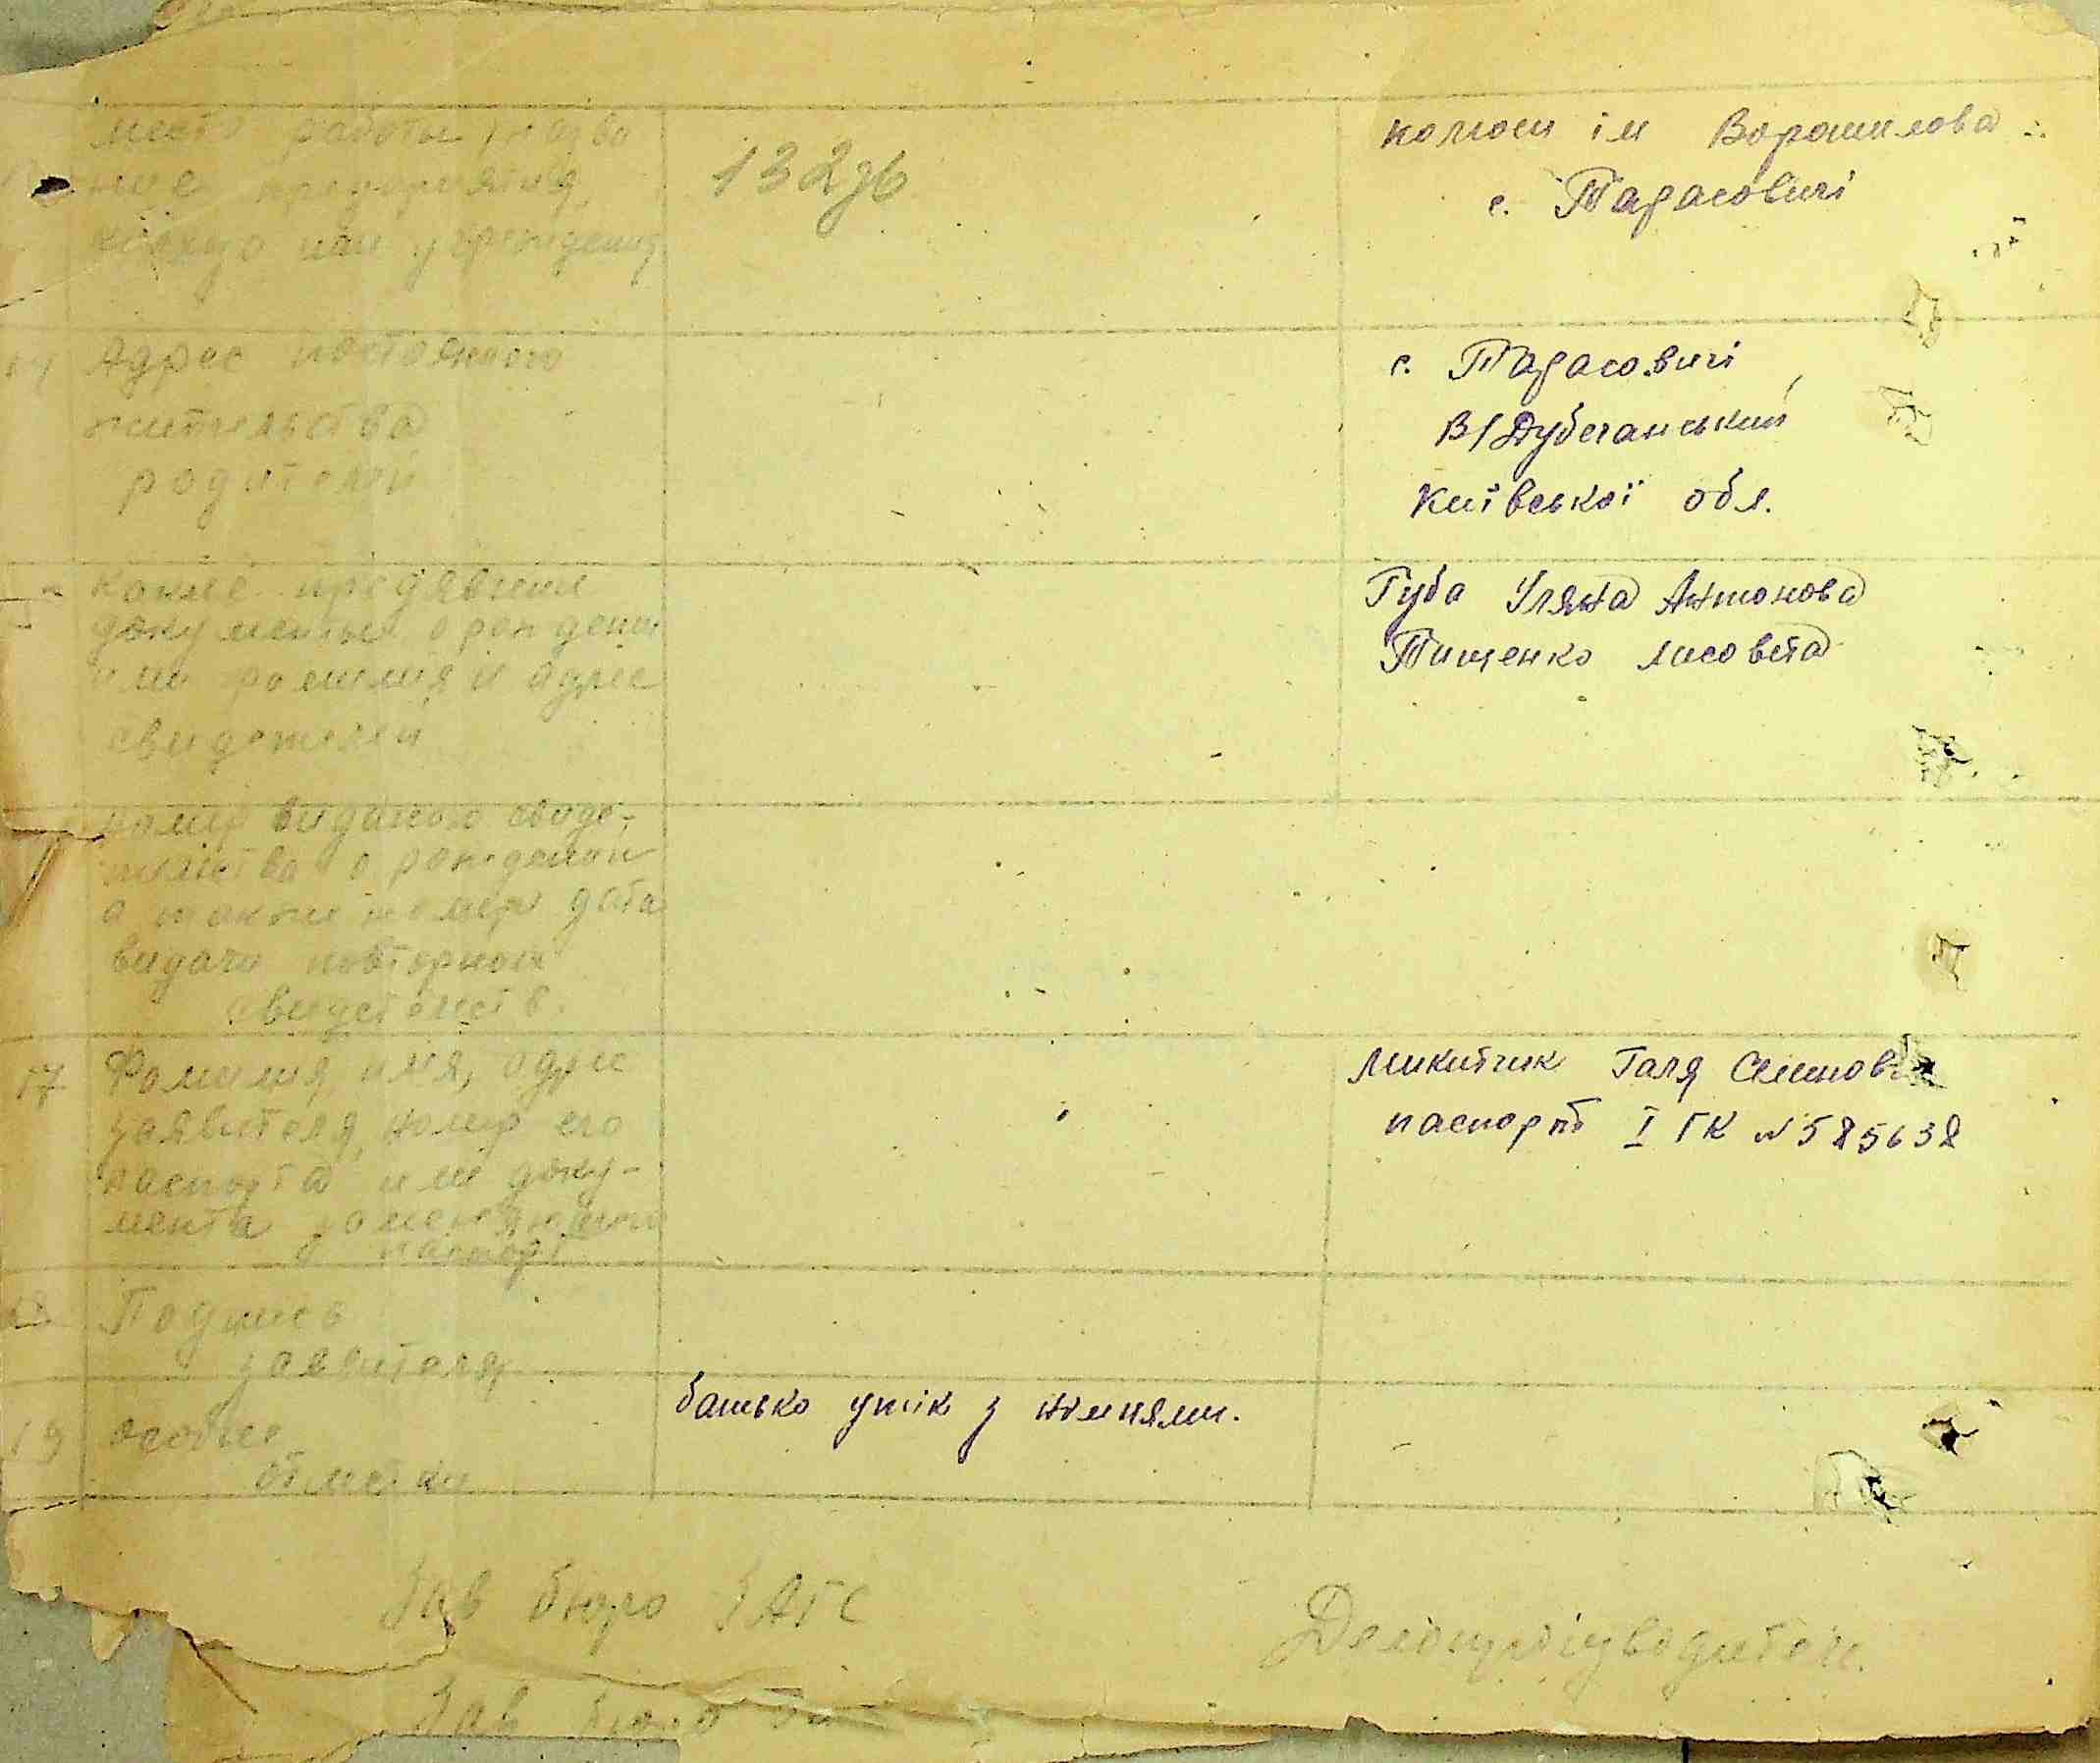 место работы, назва
ние предприятия,
колхоза или учреждения
132зв
колгосп ім Ворошилова
с. Тарасовичі
14 Адрес постояного
жительства
родителей
с. Тарасовичі
В/Дубечанський
Київської обл.
какие предявлени
документы о рождени
или фамилия и адрес
свидетелей
Губа Уляна Антонова
Тищенко лисовета
номер виданого свиде-
тельства о рождении
а также номер дата
видачи повторних
свидетельств.
17 Фамилия, имя, адрес
заявителя, номер его
паспорта или доку-
мента
паспорт
Микитчик Галя Семеновна
паспорт І ГК № 585638
18 Подпись
заявителя
19 особые
отметки
батько утік з німцями.
Зав бюро ЗАГС
Делопроізводитель.
Зав бюро